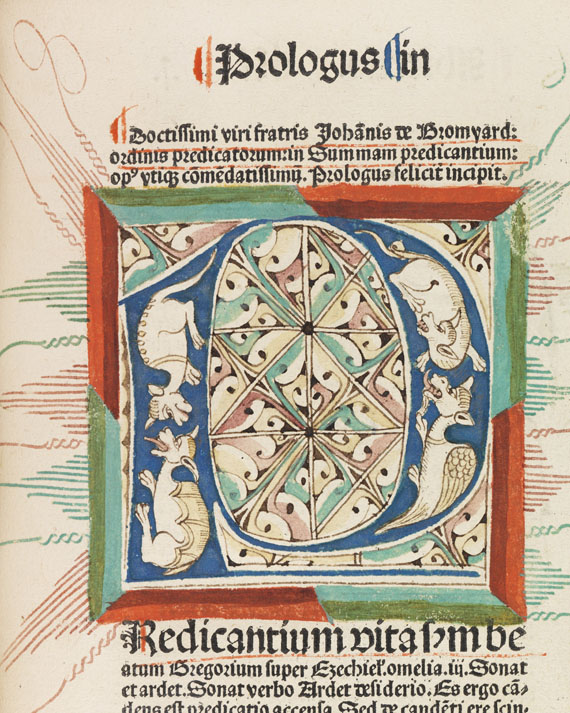 Prologus in
Doctissimi viri fratris Johānis de Bromyard:
ordinis predicatorum: in Summam predicantium:
opꝰ vtiqꝫ cōmēdatissimū. Prologus felicit incipit.
P
Redicantium vita sym be
atum Gregorium super Ezechieł. omelia. iij. Sonat
et ardet. Sonat verbo Ardet desiderio. Es ergo cā-
dens est predicatio accensa. Sed de candēti ere scin-